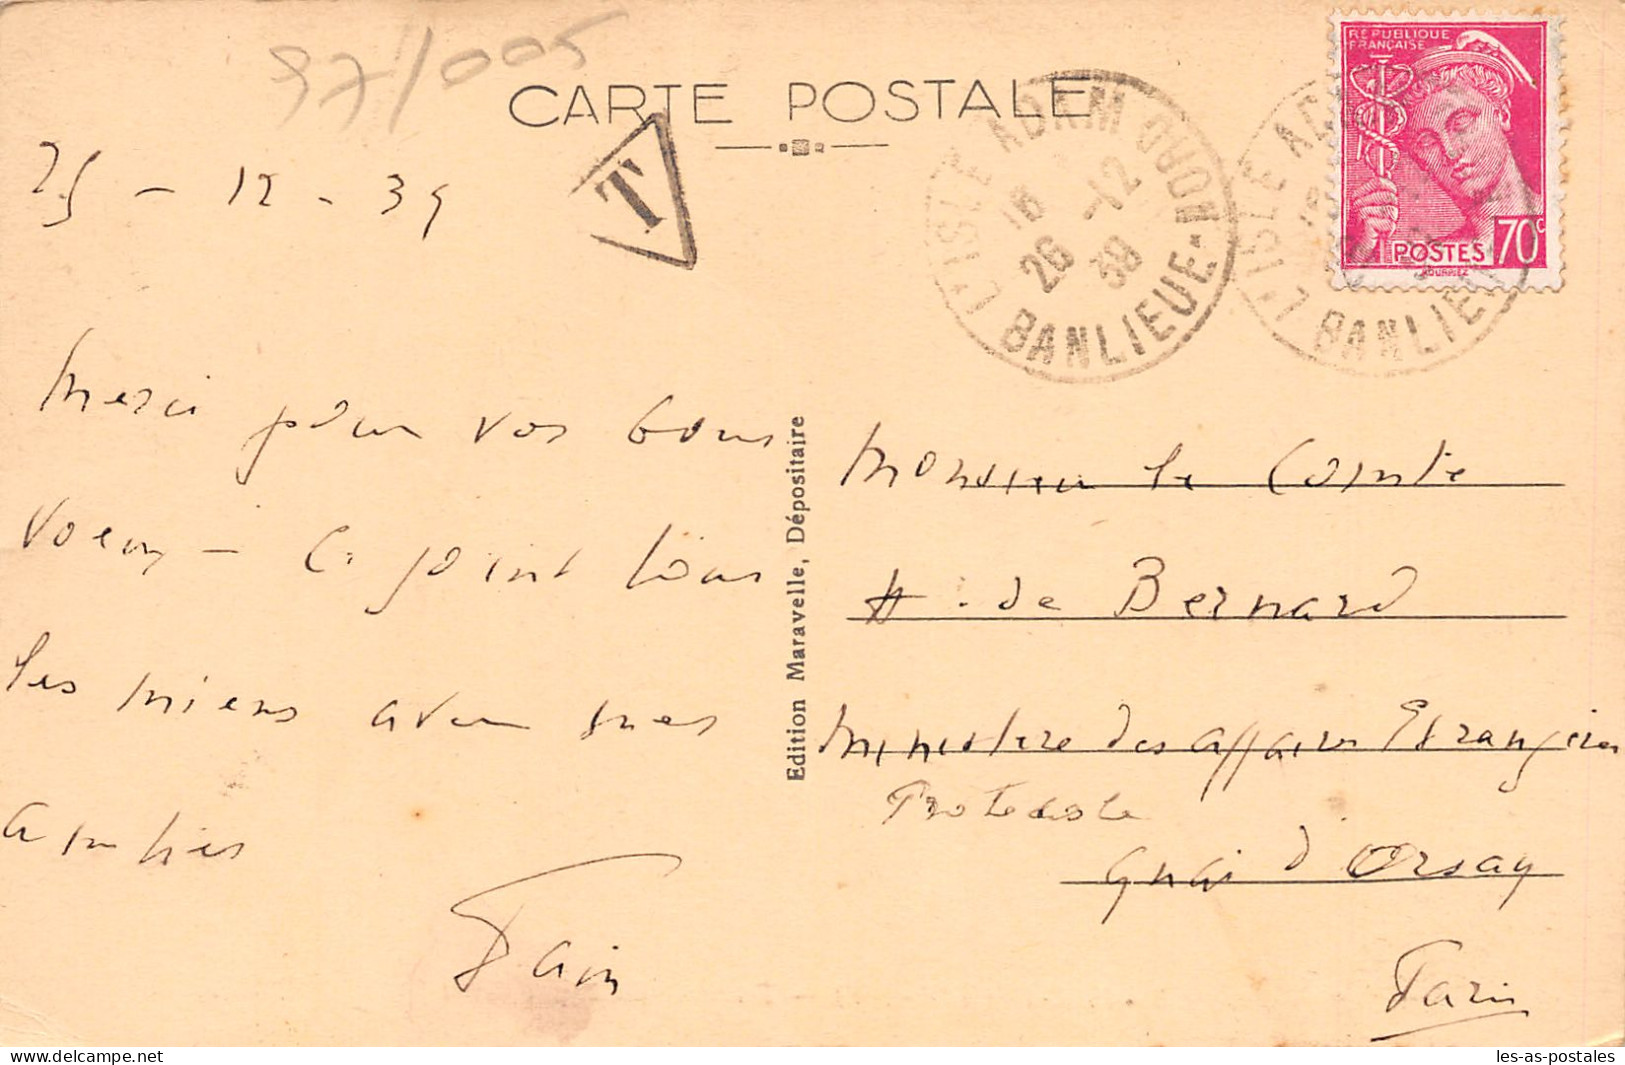 97/005
CARTE POSTALE
25 - 12 - 39
T
L'ISLE ADAM
16
26 -12
39
BANLIEUE-NORD
RÉPUBLIQUE
FRANÇAISE
POSTES 70c
L'ISLE ADAM
BANLIEUE
Merci pour vos bons
voeux - Ci joint tous
les miens avec mes
amitiés
Edition Maravelle, Dépositaire
Monsieur le Comte
H. de Bernard
Ministère des affaires Etrangères
Protocole
quai d'Orsay
Paris
les-as-postales